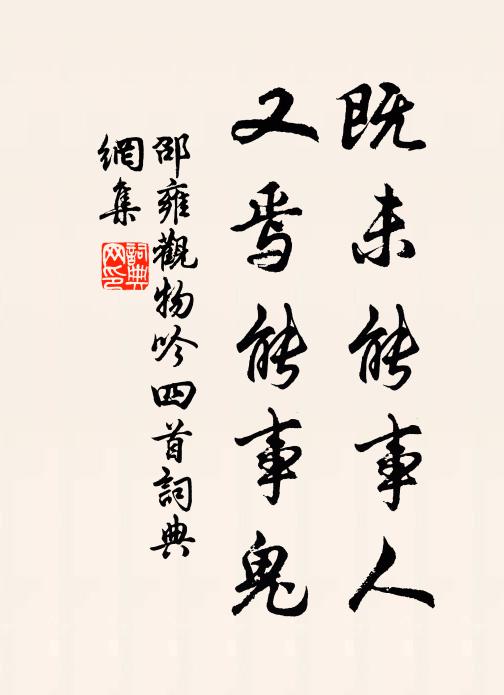 既未能事人
又焉能事鬼
邵雍觀物吟四首詞典
網集
詞典网印